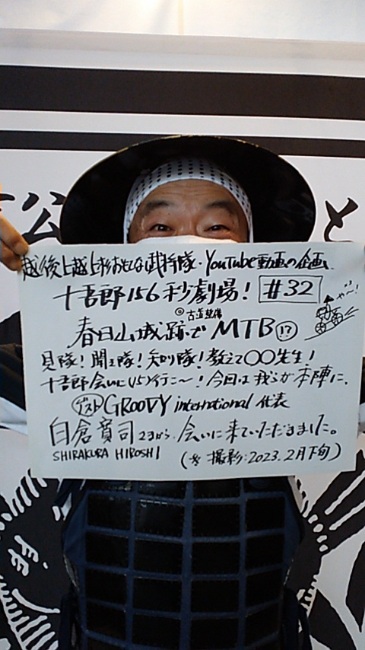 公 と
越後上越上杉おもてなし武将隊・YouTube動画の企画
十吾郎156秒劇場! #32
㋾古道整備
春日山城跡でMTB⑰
やー!
見隊!聞き隊!知り隊!教えて〇〇先生!
十吾郎会いにいざ行こ〜!今回は我らが本陣に、
ゲスト GROOVY international 代表
白倉寛司さまが、会いに来ていただきました。
SHIRAKURA HIROSHI (※撮影:2023.2月下旬)